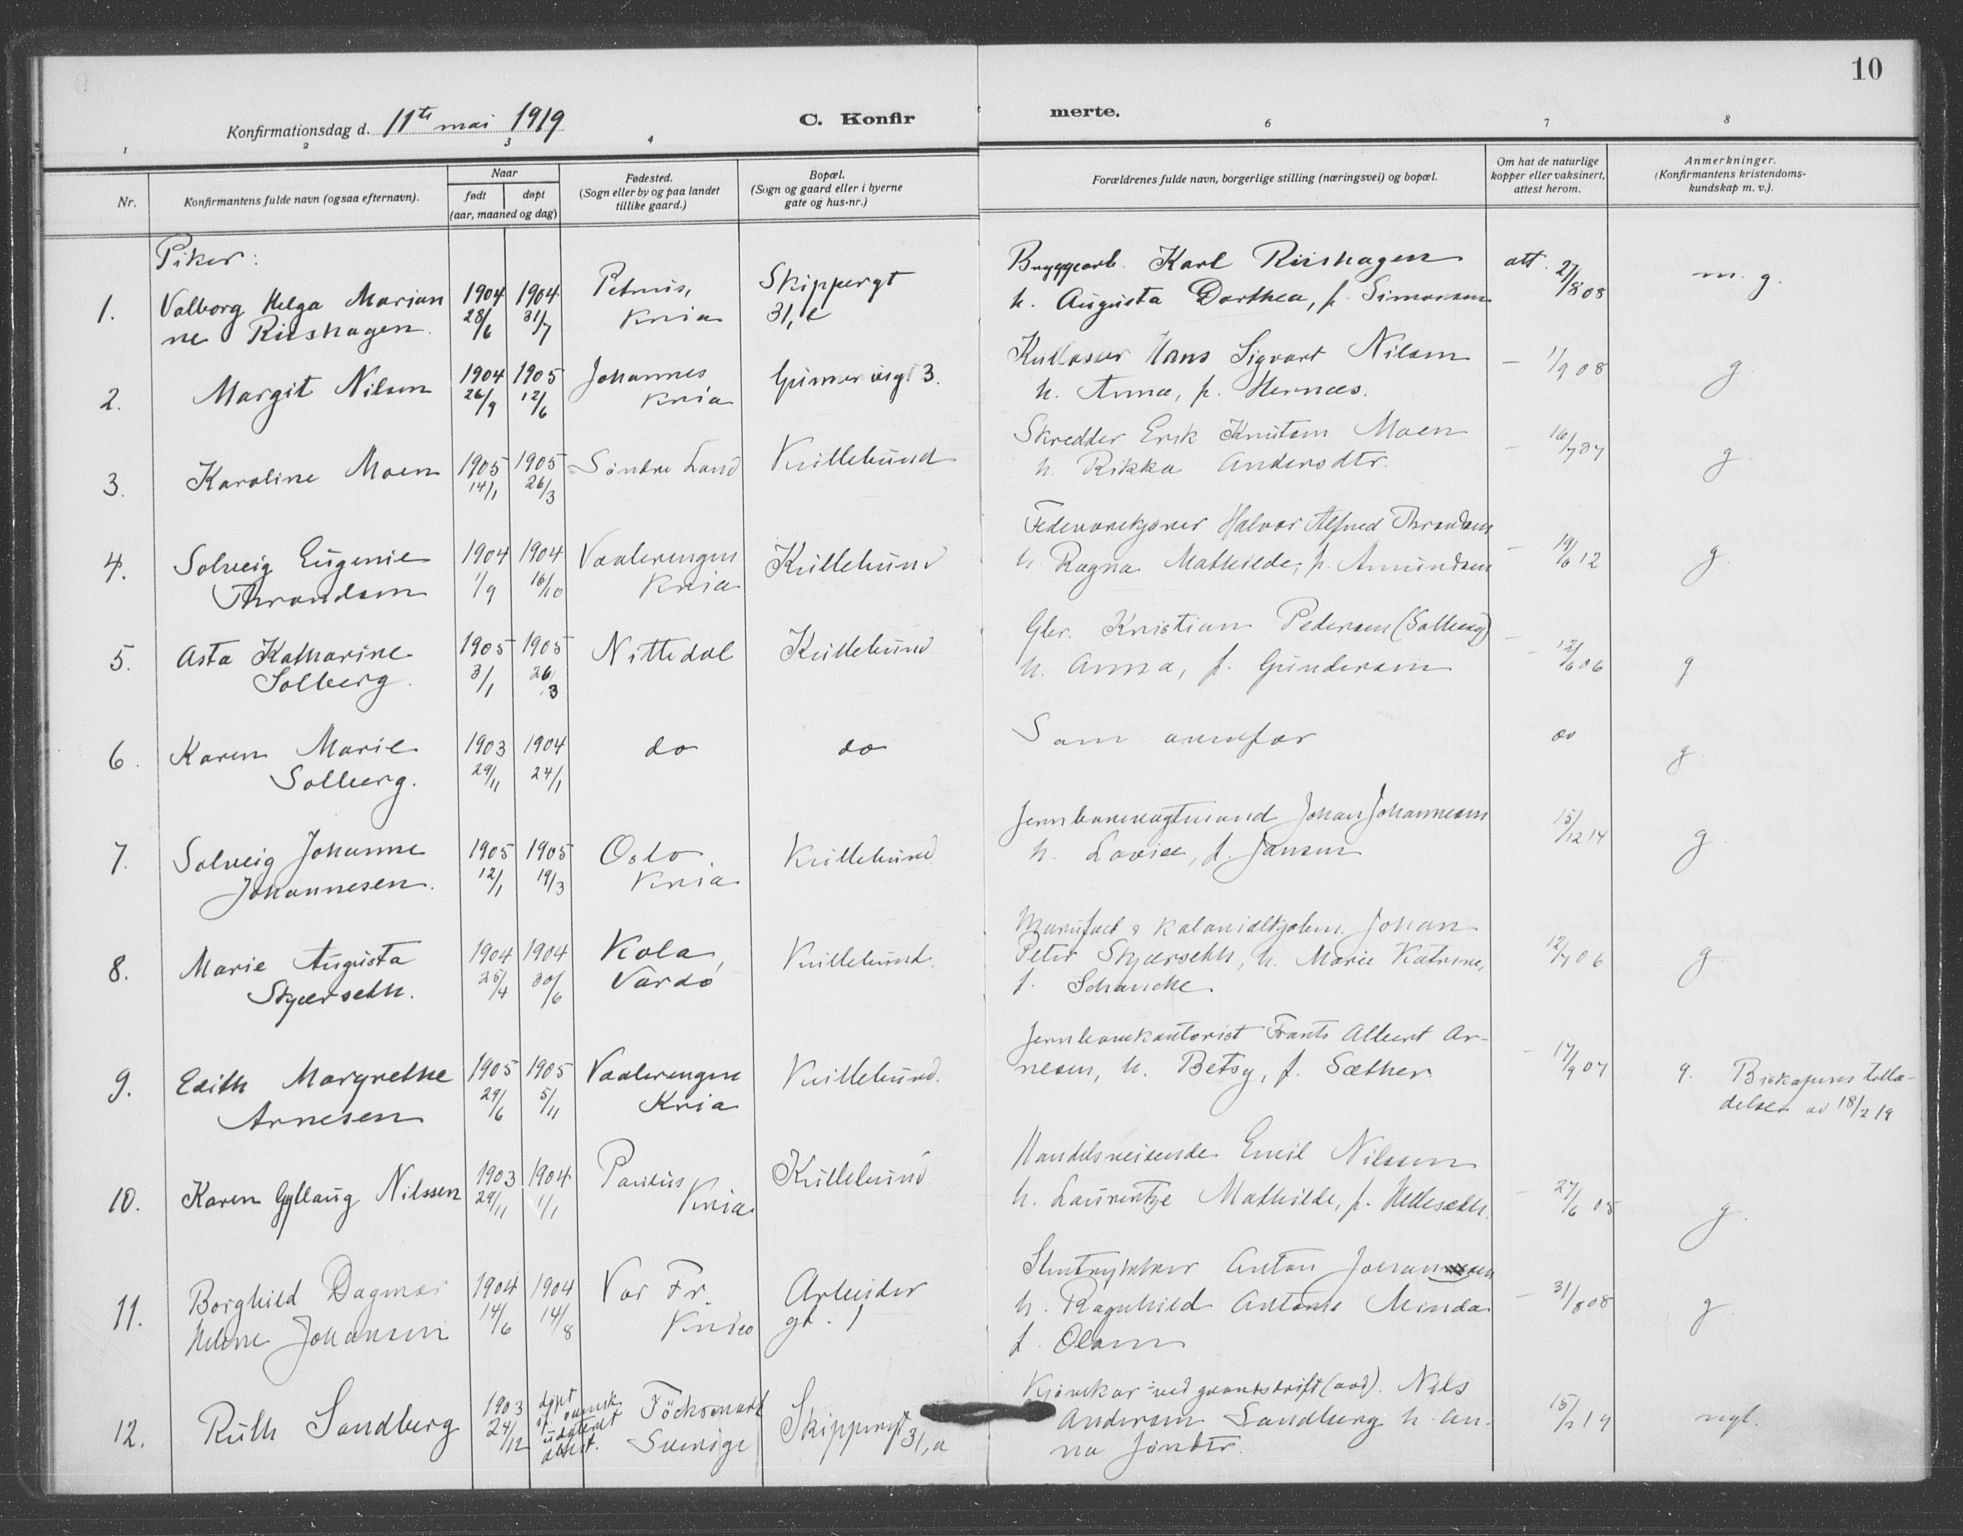 10
Konfirmationsdag d. 11te mai 1919
C. Konfir
merte.
1 2 3 4 6 7 8
Nr.
Konfirmantens fulde navn (ogsaa efternavn).
Naar
født døpt
(aar, maaned og dag)
Fødested.
(Sogn eller by og paa landet
tillike gaard.)
Bopæl.
(Sogn og gaard eller i byerne
gate og hus-nr.)
Forældrenes fulde navn, borgerlige stilling (næringsvei) og bopæl.
Om hat de naturlige
kopper eller vaksinert,
attest herom.
Anmerkninger.
(Konfirmantens kristendoms-
kundskap m. v.).
Piker:
1. Valborg Helga Marian
ne Riishagen.
1904 28/6
1904 31/7
Petrus,
Kria
Skippergt
31, c
Bryggearb. Karl Riishagen
h. Augusta Dorthea, f. Simonsen
att. 27/8 08
m. g.
2. Margit Nilsen
1904 26/9
1905 12/6
Johannes
Kria
3.
Hans Sigvart Nilsen
h. Anna, f. Hernæs.
— 1/9 08
g
3. Karoline Moen
1905 14/1
1905 26/3
Søndre Land
Kvillehund
Skredder Erik Knutsen Moen
h. Rikka Andersdtr.
— 16/7 07
g
4. Solveig Eugenie
Throndsen
1904 1/9
1904 16/10
Vaalerengen
Kria
Kvillehund
Halvor Alfred Throndsen
h. Ragna Mathilde, f. Amundsen
— 19/6 12
g.
5. Asta Katharine
Solberg.
1905 3/1
1905 26/3
Nittedal
Kvillehund
Gbr. Kristian Pedersen (Solberg)
h. Anna, f. Gundersen
— 12/6 06
g
6. Karen Marie
Solberg.
1903 29/11
1904 24/1
do
do
Som ovenfor
do
g.
7. Solveig Johanne
Johannesen.
1905 12/1
1905 19/3
Oslo.
Kria
Kvillehund
Jernbanevogtmand Johan Johannesen
h. Lovise, f. Jansen
15/12 14
g
8. Marie Augusta
Skjærseth.
1904 25/4
1904 30/6
Kola,
Vardø
Kvillehund.
Manufact & kolonialkjøbm. Johan
Peter Skjærseth, h. Marie Katrine,
f. Schancke
12/7 06
g
9. Edith Margrethe
Arnesen
1905 29/6
1905 5/11
Vaalerengen
Kria
Kvillehund.
Jernbanekontorist Frants Albert Ar-
nesen, h. Betsy, f. Sæther
— 17/9 07
g. Biskopens tilla-
delse av 18/2 19
10. Karen Gyllaug Nilssen
1903 29/11
1904 1/1
Paulus
Kria.
Kvillehund
Handelsreisende Emil Nilssen
h. Laurentze Mathilde, f. Hellesæth.
— 27/6 05
g.
11. Borghild Dagmar
Helene Johansen
1904 14/6
1904 14/8
Vor Fr.
Kria
Arbeider
gt. 1
Stentrykker Anton Johannesen
h. Ragnhild Antonie Minda
f. Olsen
— 31/8 08
g.
12. Ruth Sandberg
1903 24/12
døpt
fl. svensk
attest.
Sverige
Skippergt 31, a
Nils
Andersen Sandberg h. An-
na Jonsdtr.
15/2 19
mgt.